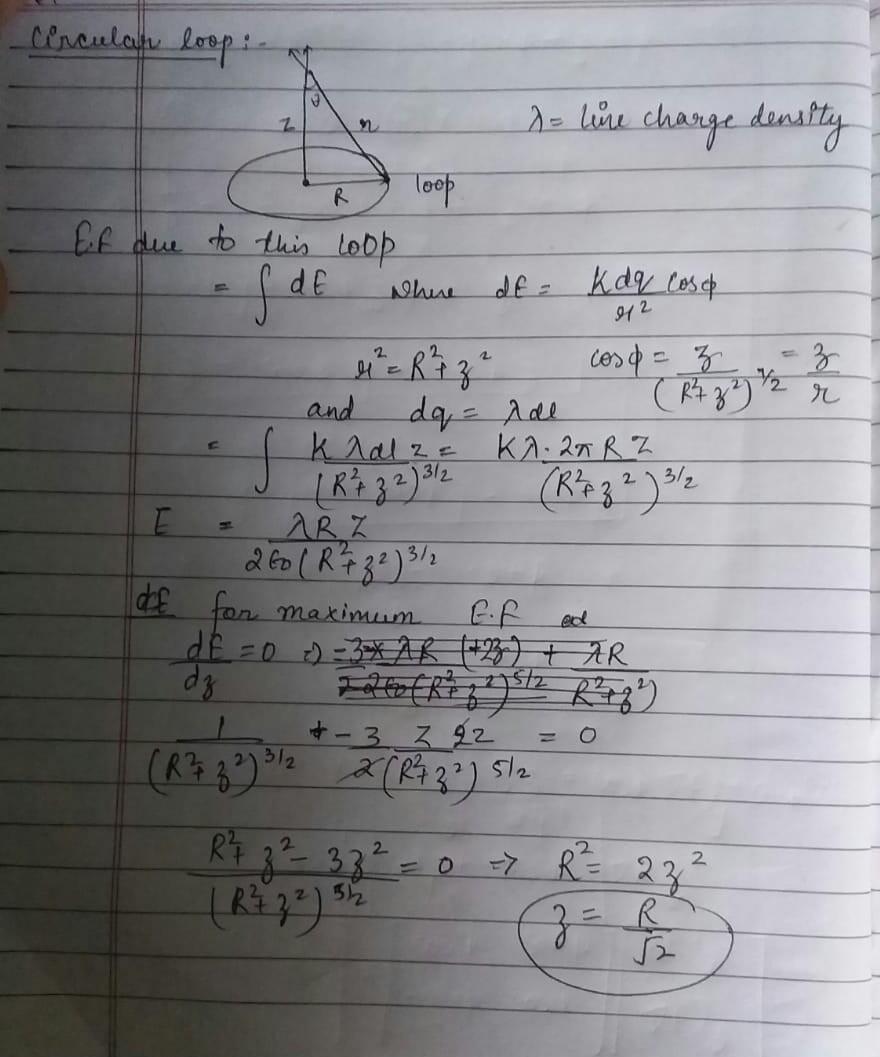 Circular loop :-
θ
z r λ = line charge density
R loop
E.F due to this loop
= ∫ dE where dE = K dq cosφ / r²
r² = R² + z² cosφ = z / (R² + z²)^1/2 = z / r
and dq = λ dl
= ∫ K λ dl z / (R² + z²)^3/2 = Kλ . 2π R Z / (R² + z²)^3/2
E = λ R Z / 2 ϵ0 (R² + z²)^3/2
for maximum E.F
dE / dz = 0 ⇒ -3 λR (+2z) / 2 2ϵ0 (R² + z²)^5/2 + λR / R² + z²)
1 / (R² + z²)^3/2 - 3 z 2z / 2 (R² + z²)^5/2 = 0
R² + z² - 3z² / (R² + z²)^5/2 = 0 ⇒ R² = 2z²
z = R / √2